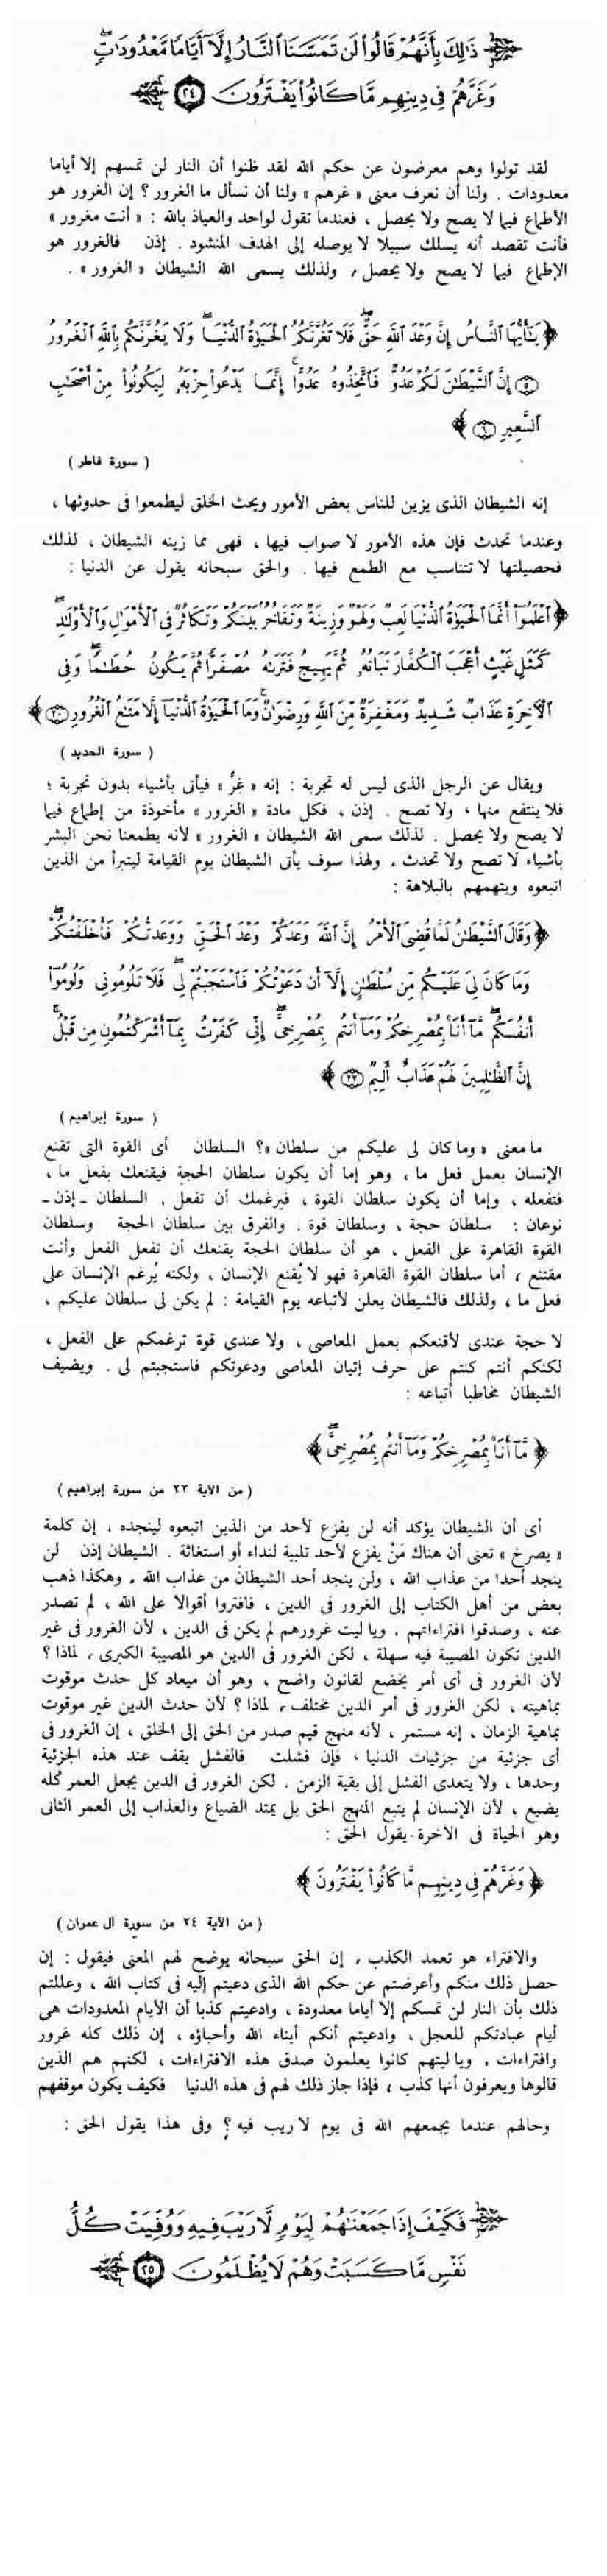 ذَٰلِكَ بِأَنَّهُمْ قَالُوا۟ لَن تَمَسَّنَا ٱلنَّارُ إِلَّآ أَيَّامًا مَّعْدُودَٰتٍۢ ۖ
وَغَرَّهُمْ فِى دِينِهِم مَّا كَانُوا۟ يَفْتَرُونَ ٢٤
لقد تولوا وهم معرضون عن حكم الله لقد ظنوا أن النار لن تمسهم إلا أياما
معدودات . ولنا أن نعرف معنى « غرهم » ولنا أن نسأل ما الغرور ؟ إن الغرور هو
الأطماع فيما لا يصح ولا يحصل ، فعندما تقول لواحد والعياذ بالله : « أنت مغرور »
فأنت تقصد أنه يسلك سبيلا لا يوصله إلى الهدف المنشود . إذن فالغرور هو
الإطماع فيما لا يصح ولا يحصل ، ولذلك يسمى الله الشيطان « الغرور » .
﴿ يَٰٓأَيُّهَا ٱلنَّاسُ إِنَّ وَعْدَ ٱللَّهِ حَقٌّ ۖ فَلَا تَغُرَّنَّكُمُ ٱلْحَيَوٰةُ ٱلدُّنْيَا ۖ وَلَا يَغُرَّنَّكُم بِٱللَّهِ ٱلْغَرُورُ
٥ إِنَّ ٱلشَّيْطَٰنَ لَكُمْ عَدُوٌّ فَٱتَّخِذُوهُ عَدُوًّا ۚ إِنَّمَا يَدْعُوا۟ حِزْبَهُۥ لِيَكُونُوا۟ مِنْ أَصْحَٰبِ
ٱلسَّعِيرِ ٦ ﴾
( سورة فاطر )
إنه الشيطان الذى يزين للناس بعض الأمور ويحث الخلق ليطمعوا فى حدوثها ،
وعندما تحدث فإن هذه الأمور لا صواب فيها ، فهى مما زينه الشيطان ، لذلك
فحصيلتها لا تتناسب مع الطمع فيها . والحق سبحانه يقول عن الدنيا :
﴿ ٱعْلَمُوٓا۟ أَنَّمَا ٱلْحَيَوٰةُ ٱلدُّنْيَا لَعِبٌ وَلَهْوٌ وَزِينَةٌ وَتَفَاخُرٌۢ بَيْنَكُمْ وَتَكَاثُرٌ فِى ٱلْأَمْوَٰلِ وَٱلْأَوْلَٰدِ ۖ
كَمَثَلِ غَيْثٍ أَعْجَبَ ٱلْكُفَّارَ نَبَاتُهُۥ ثُمَّ يَهِيجُ فَتَرَىٰهُ مُصْفَرًّا ثُمَّ يَكُونُ حُطَٰمًا ۖ وَفِى
ٱلْأٓخِرَةِ عَذَابٌ شَدِيدٌ وَمَغْفِرَةٌ مِّنَ ٱللَّهِ وَرِضْوَٰنٌ ۚ وَمَا ٱلْحَيَوٰةُ ٱلدُّنْيَآ إِلَّا مَتَٰعُ ٱلْغُرُورِ ٢٠ ﴾
( سورة الحديد )
ويقال عن الرجل الذى ليس له تجربة : إنه « غِرٌّ » فيأتى بأشياء بدون تجربة ؛
فلا ينتفع منها ، ولا تصح . إذن ، فكل مادة « الغرور » مأخوذة من إطماع فيما
لا يصح ولا يحصل . لذلك سمى الله الشيطان « الغرور » لأنه يطمعنا نحن البشر
بأشياء لا تصح ولا تحدث ، ولهذا سوف يأتى الشيطان يوم القيامة ليتبرأ من الذين
اتبعوه ويتهمهم بالبلاهة :
﴿ وَقَالَ ٱلشَّيْطَٰنُ لَمَّا قُضِىَ ٱلْأَمْرُ إِنَّ ٱللَّهَ وَعَدَكُمْ وَعْدَ ٱلْحَقِّ وَوَعَدتُّكُمْ فَأَخْلَفْتُكُمْ ۖ
وَمَا كَانَ لِىَ عَلَيْكُم مِّن سُلْطَٰنٍ إِلَّآ أَن دَعَوْتُكُمْ فَٱسْتَجَبْتُمْ لِى ۖ فَلَا تَلُومُونِى وَلُومُوٓا۟
أَنفُسَكُم ۖ مَّآ أَنَا۠ بِمُصْرِخِكُمْ وَمَآ أَنتُم بِمُصْرِخِىَّ ۖ إِنِّى كَفَرْتُ بِمَآ أَشْرَكْتُمُونِ مِن قَبْلُ ۗ
إِنَّ ٱلظَّٰلِمِينَ لَهُمْ عَذَابٌ أَلِيمٌ ٢٢ ﴾
( سورة إبراهيم )
ما معنى « وما كان لى عليكم من سلطان »؟ السلطان أى القوة التى تقنع
الإنسان بعمل فعل ما ، وهو إما أن يكون سلطان الحجة فيقنعك بفعل ما ،
فتفعله ، وإما أن يكون سلطان القوة ، فيرغمك أن تفعل . السلطان - إذن -
نوعان : سلطان حجة ، وسلطان قوة . والفرق بين سلطان الحجة وسلطان
القوة القاهرة على الفعل ، هو أن سلطان الحجة يقنعك أن تفعل الفعل وأنت
مقتنع ، أما سلطان القوة القاهرة فهو لا يُقنع الإنسان ، ولكنه يُرغم الإنسان على
فعل ما ، ولذلك فالشيطان يعلن لأتباعه يوم القيامة : لم يكن لى سلطان عليكم ،
لا حجة عندى لأقنعكم بعمل المعاصى ، ولا عندى قوة ترغمكم على الفعل ،
لكنكم أنتم كنتم على حرف إتيان المعاصى ودعوتكم فاستجبتم لى . ويضيف
الشيطان مخاطبا أتباعه :
﴿ مَّآ أَنَا۠ بِمُصْرِخِكُمْ وَمَآ أَنتُم بِمُصْرِخِىَّ ۖ ﴾
( من الآية ٢٢ من سورة إبراهيم )
أى أن الشيطان يؤكد أنه لن يفزع لأحد من الذين اتبعوه لينجده ، إن كلمة
« يصرخ » تعنى أن هناك مَنْ يفزع لأحد تلبية لنداء أو استغاثة . الشيطان إذن لن
ينجد أحدا من عذاب الله ، ولن ينجد أحد الشيطان من عذاب الله . وهكذا ذهب
بعض من أهل الكتاب إلى الغرور فى الدين ، فافتروا أقوالا على الله ، لم تصدر
عنه ، وصدقوا افتراءاتهم . ويا ليت غرورهم لم يكن فى الدين ، لأن الغرور فى غير
الدين تكون المصيبة فيه سهلة ، لكن الغرور فى الدين هو المصيبة الكبرى ، لماذا ؟
لأن الغرور فى أى أمر يخضع لقانون واضح ، وهو أن ميعاد كل حدث موقوت
بماهيته ، لكن الغرور فى أمر الدين مختلف ، لماذا ؟ لأن حدث الدين غير موقوت
بماهية الزمان ، إنه مستمر ، لأنه منهج قيم صدر من الحق إلى الخلق ، إن الغرور فى
أى جزئية من جزئيات الدنيا ، فإن فشلت فالفشل يقف عند هذه الجزئية
وحدها ، ولا يتعدى الفشل إلى بقية الزمن . لكن الغرور فى الدين يجعل العمر كله
يضيع ، لأن الإنسان لم يتبع المنهج الحق بل يمتد الضياع والعذاب إلى العمر الثانى
وهو الحياة فى الآخرة . يقول الحق :
﴿ وَغَرَّهُمْ فِى دِينِهِم مَّا كَانُوا۟ يَفْتَرُونَ ﴾
( من الآية ٢٤ من سورة آل عمران )
والافتراء هو تعمد الكذب ، إن الحق سبحانه يوضح لهم المعنى فيقول : إن
حصل ذلك منكم وأعرضتم عن حكم الله الذى دعيتم إليه فى كتاب الله ، وعللتم
ذلك بأن النار لن تمسكم إلا أياما معدودة ، وادعيتم كذبا أن الأيام المعدودات هى
أيام عبادتكم للعجل ، وادعيتم أنكم أبناء الله وأحباؤه ، إن ذلك كله غرور
وافتراءات . ويا ليتهم كانوا يعلمون صدق هذه الافتراءات ، لكنهم هم الذين
قالوها ويعرفون أنها كذب ، فإذا جاز ذلك لهم فى هذه الدنيا فكيف يكون موقفهم
وحالهم عندما يجمعهم الله فى يوم لا ريب فيه ؟ وفى هذا يقول الحق :
فَكَيْفَ إِذَا جَمَعْنَٰهُمْ لِيَوْمٍ لَّا رَيْبَ فِيهِ وَوُفِّيَتْ كُلُّ
نَفْسٍ مَّا كَسَبَتْ وَهُمْ لَا يُظْلَمُونَ ٢٥